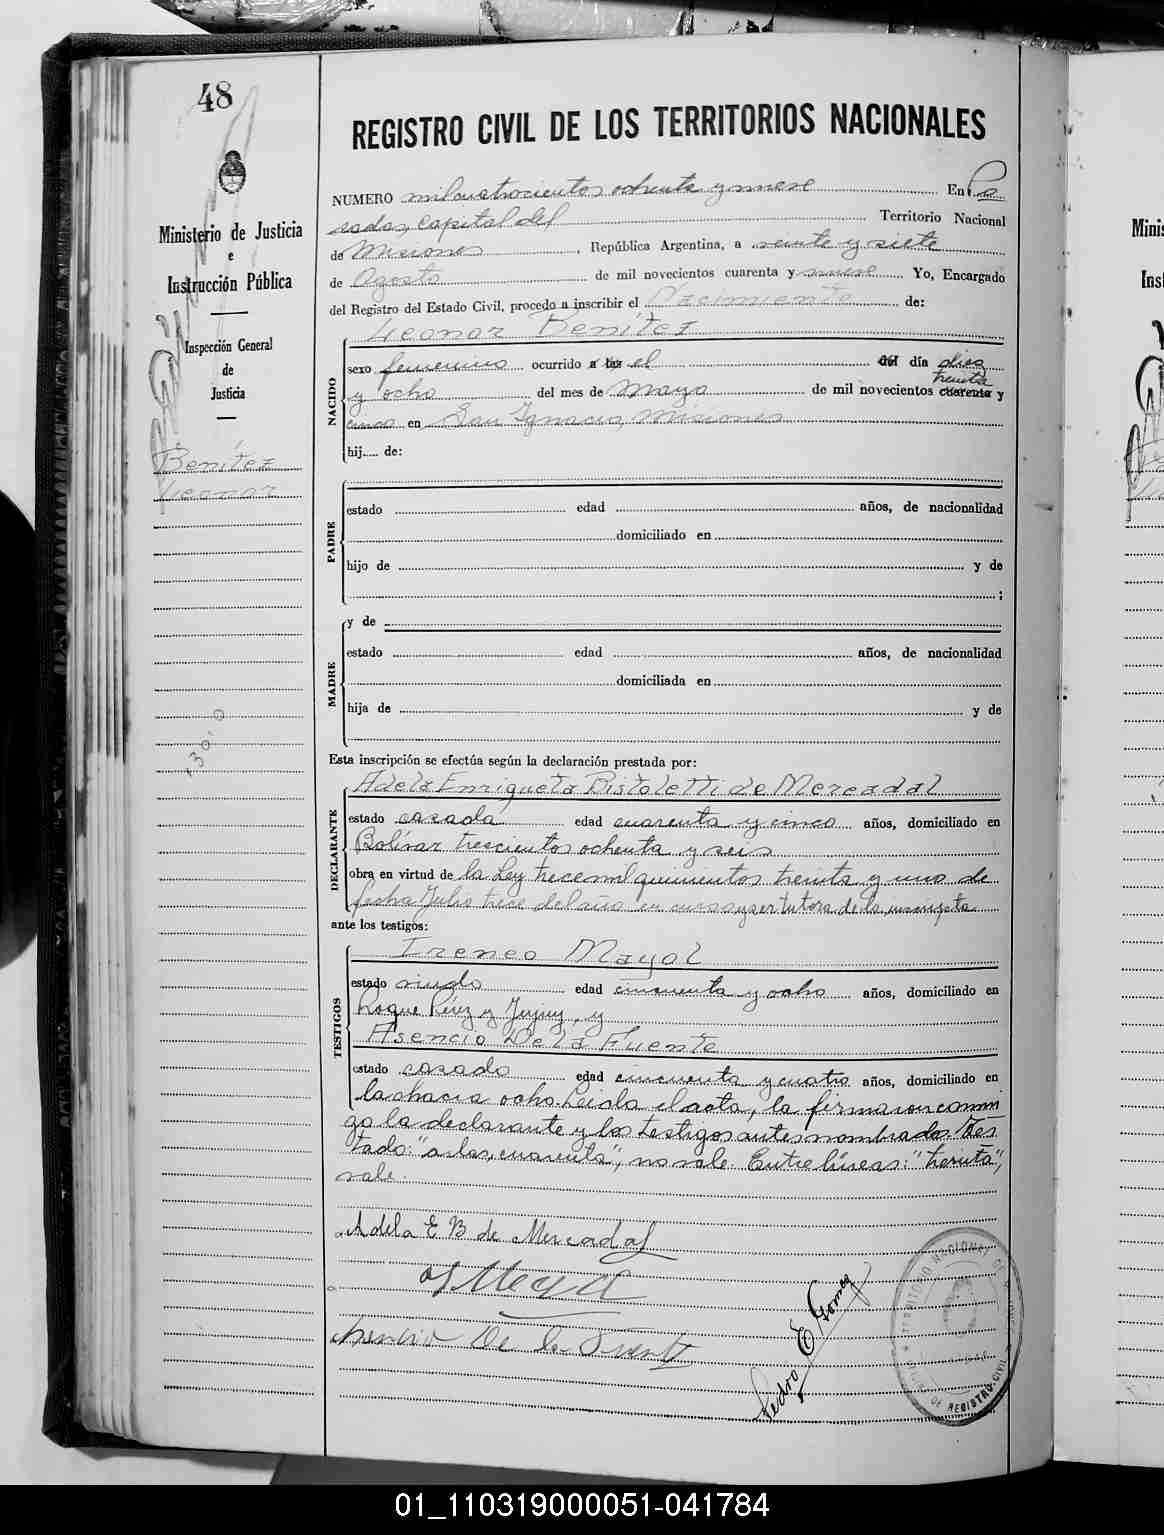 48
REGISTRO CIVIL DE LOS TERRITORIOS NACIONALES
Ministerio de Justicia
e
Instrucción Pública
Inspección General
de
Justicia
Benítez
Leonor
NUMERO mil cuatrocientos ochenta y nueve En Po
sadas, capital del Territorio Nacional
de Misiones, República Argentina, a veinte y siete
de Agosto de mil novecientos cuarenta y nueve Yo, Encargado
del Registro del Estado Civil, procedo a inscribir el Nacimiento de:
NACIDO
Leonor Benítez
sexo femenino ocurrido a las el del día diez
y ocho del mes de Mayo de mil novecientos cuarenta treinta y
cinco en San Ignacio, Misiones
hij.... de:
PADRE
estado edad años, de nacionalidad
domiciliado en
hijo de y de
;
MADRE
y de
estado edad años, de nacionalidad
domiciliada en
hija de y de
Esta inscripción se efectúa según la declaración prestada por:
DECLARANTE
Adela Enriqueta Bistoletti de Mercadal
estado casada edad cuarenta y cinco años, domiciliado en
Bolívar trescientos ochenta y seis
obra en virtud de la Ley trece mil quinientos treinta y uno de
fecha Julio trece del año en curso y ser tutora de la inscripta
ante los testigos:
TESTIGOS
Ireneo Mayol
estado viudo edad cincuenta y ocho años, domiciliado en
Roque Pérez y Jujuy, y
Asencio De la Fuente
estado casado edad cincuenta y cuatro años, domiciliado en
la chacra ocho. Leida el acta, la firmaron conmi
go la declarante y los testigos antes nombrados. Tes
tado: "a las, cuarenta", no vale. Entre líneas: "treinta",
vale.
Adela E B de Mercadal
Asencio De la Fuente
Pedro E Gomez
TERRITORIO NACIONAL DE
DE REGISTRO CIVIL
Minis
Ins
01_110319000051-041784